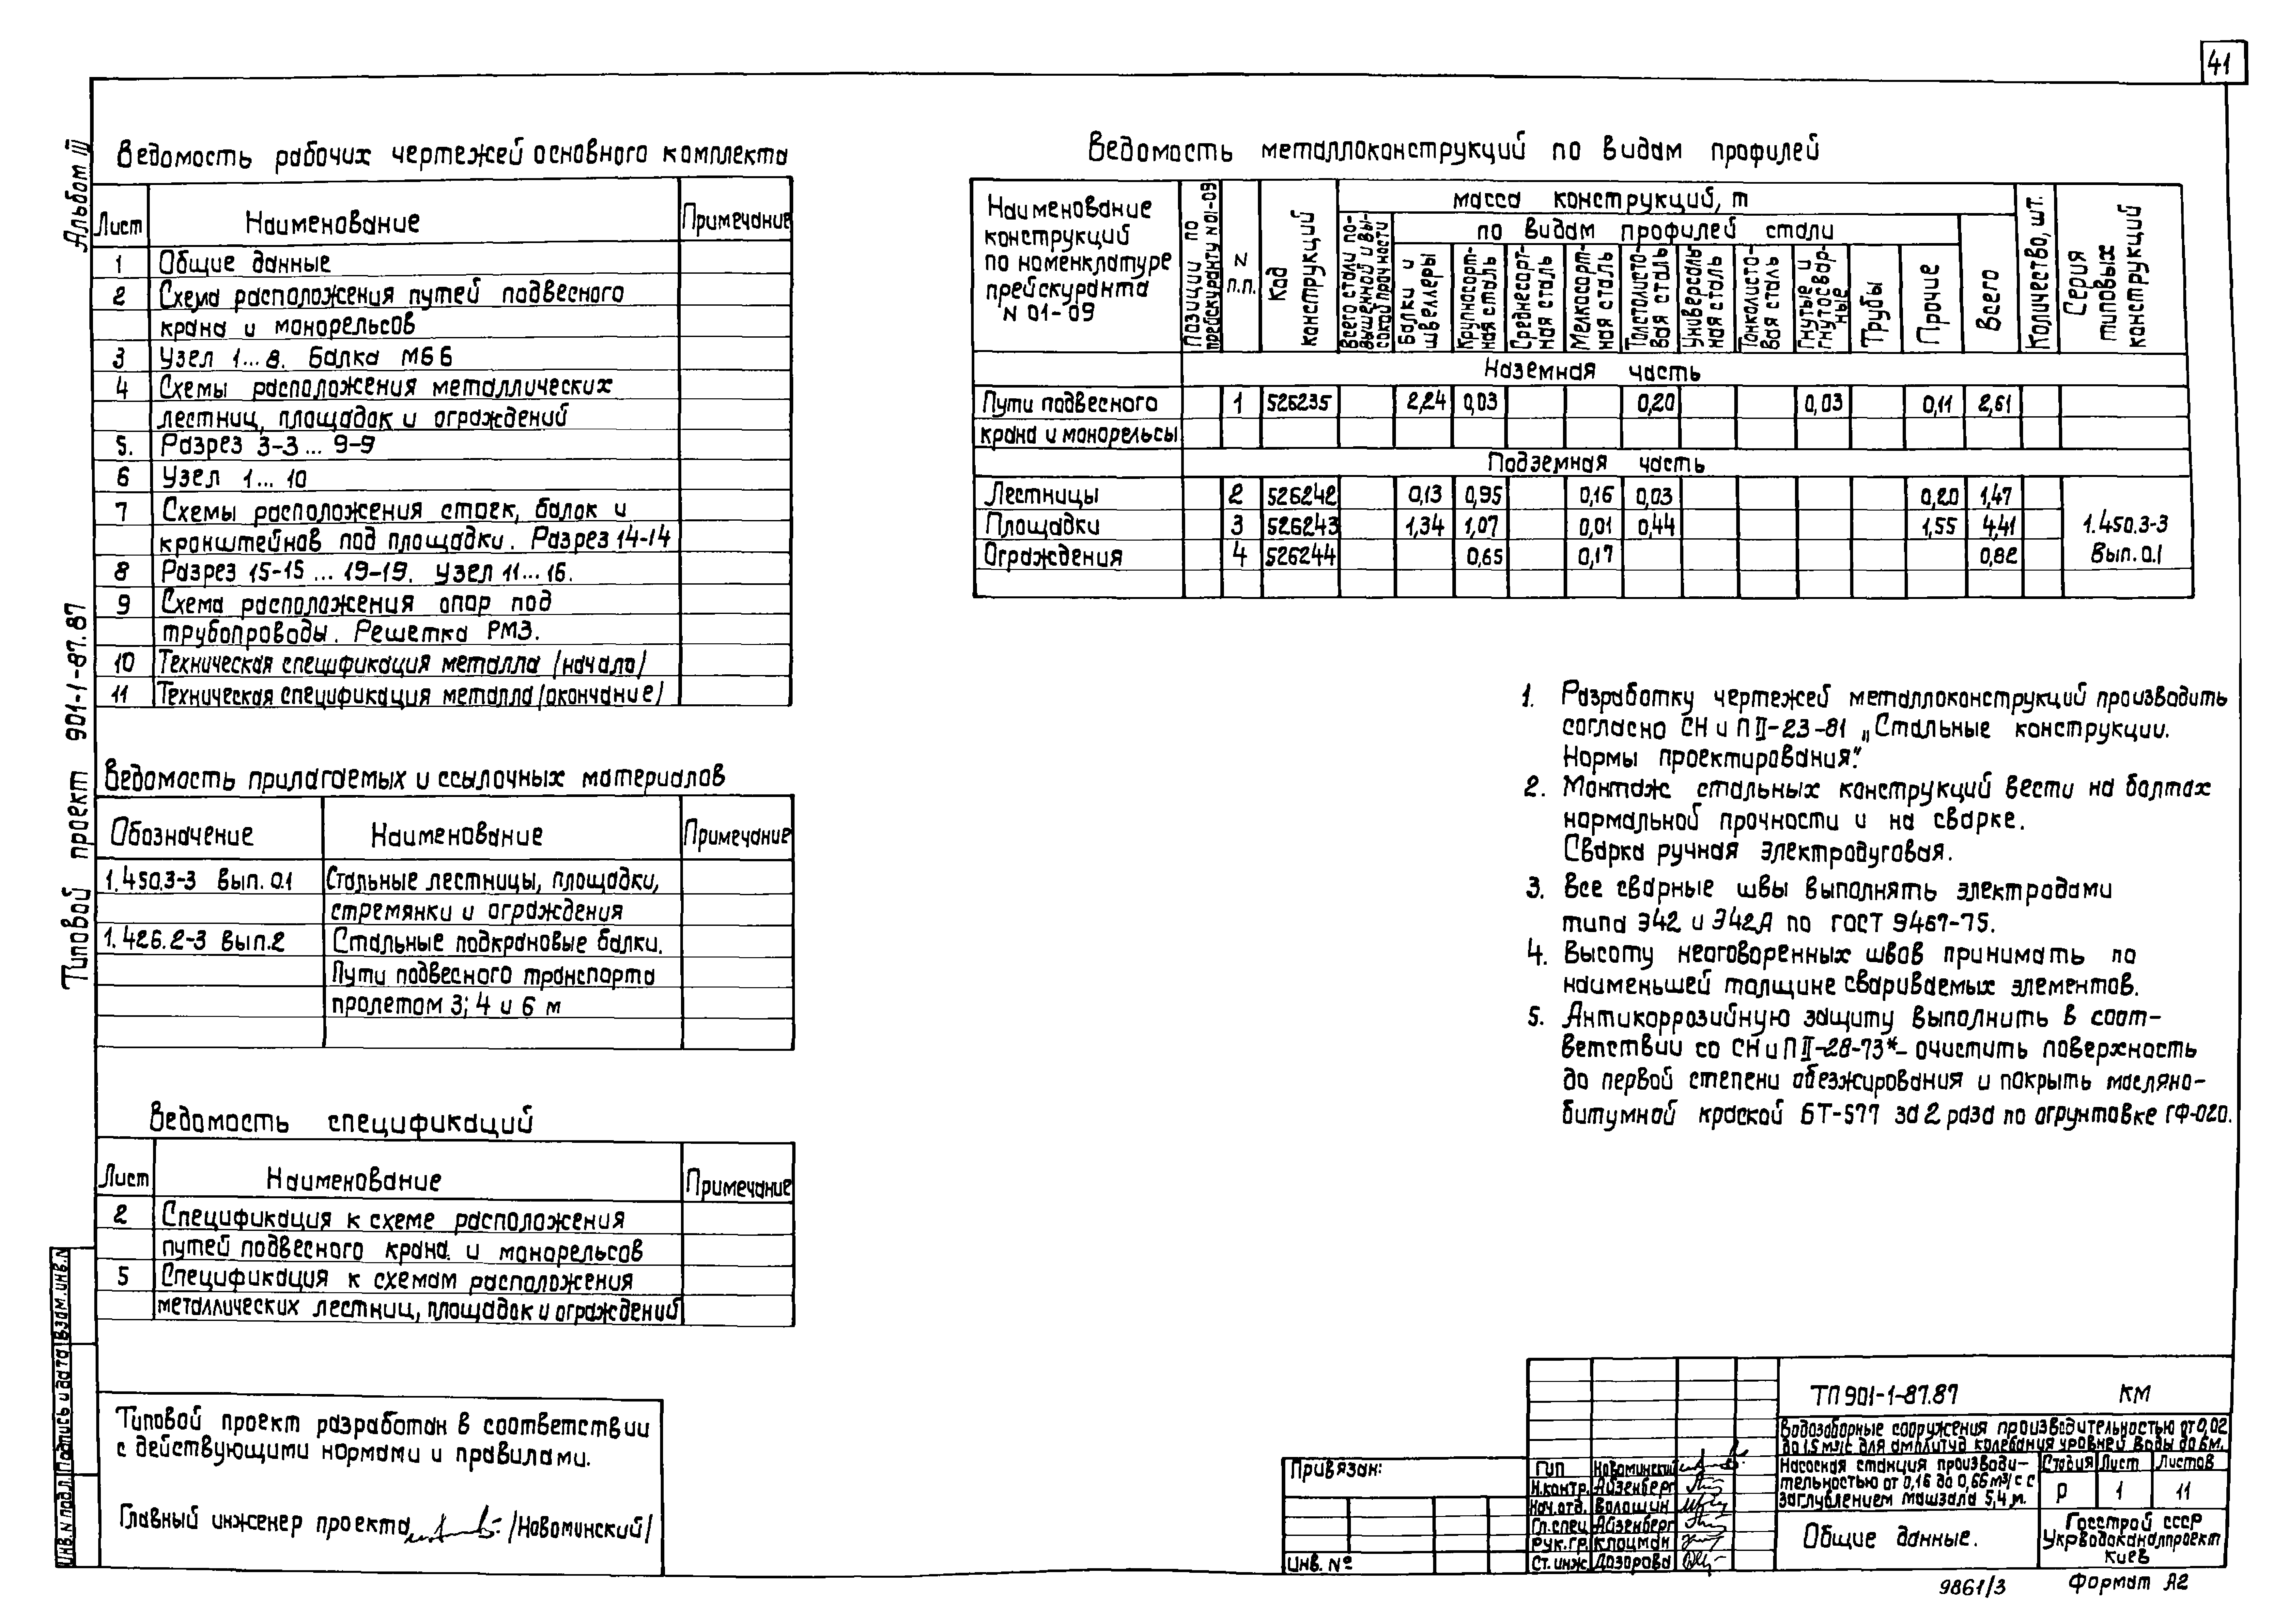 41
Альбом III
Типовой проект 901-1-87.87
Ведомость рабочих чертежей основного комплекта
Лист Наименование Примечание
1 Общие данные
2 Схема расположения путей подвесного
крана и монорельсов
3 Узел 1...8. Балка МБ6
4 Схемы расположения металлических
лестниц, площадок и ограждений
5. Разрез 3-3 ... 9-9
6 Узел 1... 10
7 Схемы расположения стоек, балок и
кронштейнов под площадки. Разрез 14-14
8 Разрез 15-15 ... 19-19. Узел 11...16.
9 Схема расположения опор под
трубопроводы. Решетка РМ3.
10 Техническая спецификация металла /начало/
11 Техническая спецификация металла /окончание/
Ведомость прилагаемых и ссылочных материалов
Обозначение Наименование Примечание
1.450.3-3 Вып. 0.1 Стальные лестницы, площадки,
стремянки и ограждения
1.426.2-3 Вып.2 Стальные подкрановые балки.
Пути подвесного транспорта
пролетом 3; 4 и 6 м
Ведомость спецификаций
Лист Наименование Примечание
2 Спецификация к схеме расположения
путей подвесного крана и монорельсов
5 Спецификация к схемам расположения
металлических лестниц, площадок и ограждений
Типовой проект разработан в соответствии
с действующими нормами и правилами.
Главный инженер проекта /Новоминский/
Инв. N подл. Подпись и дата Взам. инв. N
Ведомость металлоконструкций по видам профилей
Наименование
конструкций
по номенклатуре
прейскуранта
N 01-09
Позиции по
прейскуранту N01-09
N
п.п.
Код
конструкций
масса конструкций, т
Всего стали по-
вышенной и вы-
сокой прочности
по видам профилей стали
Балки и
швеллеры
Крупносорт-
ная сталь
Среднесорт-
ная сталь
Мелкосорт-
ная сталь
Толстолисто-
вая сталь
Универсаль-
ная сталь
Тонколисто-
вая сталь
Гнутые и
гнутосвар-
ные
Трубы
Прочие
Всего
Количество, шт.
Серия
типовых
конструкций
Наземная часть
Пути подвесного 1 526235 2,24 0,03 0,20 0,03 0,11 2,61
крана и монорельсы
Подземная часть
Лестницы 2 526242 0,13 0,95 0,16 0,03 0,20 1,47
Площадки 3 526243 1,34 1,07 0,01 0,44 1,55 4,41 1.450.3-3
Ограждения 4 526244 0,65 0,17 0,82 Вып. 0.1
1. Разработку чертежей металлоконструкций производить
согласно СНиП II-23-81 „Стальные конструкции.
Нормы проектирования".
2. Монтаж стальных конструкций вести на болтах
нормальной прочности и на сварке.
Сварка ручная электродуговая.
3. Все сварные швы выполнять электродами
типа Э42 и Э42А по ГОСТ 9467-75.
4. Высоту неоговоренных швов принимать по
наименьшей толщине свариваемых элементов.
5. Антикоррозийную защиту выполнить в соот-
ветствии со СНиП II-28-73*- очистить поверхность
до первой степени обезжирования и покрыть масляно-
битумной краской БТ-577 за 2 раза по огрунтовке ГФ-020.
Привязан:
Инв. №
ГИП Новоминский
Н.контр. Айзенберг
Нач.отд. Волошин
Гл.спец Айзенберг
Рук.гр. Клоцман
Ст.инж. Дозорова
ТП 901-1-87.87 КМ
Водозаборные сооружения производительностью от 0,02
до 1,5 м³/с для амплитуд колебания уровней воды до 6м.
Насосная станция производи-
тельностью от 0,16 до 0,66 м³/с с
заглублением машзала 5,4 м.
Стадия Лист Листов
Р 1 11
Общие данные.
Госстрой СССР
Укрводоканалпроект
Киев
9861/3 Формат А2